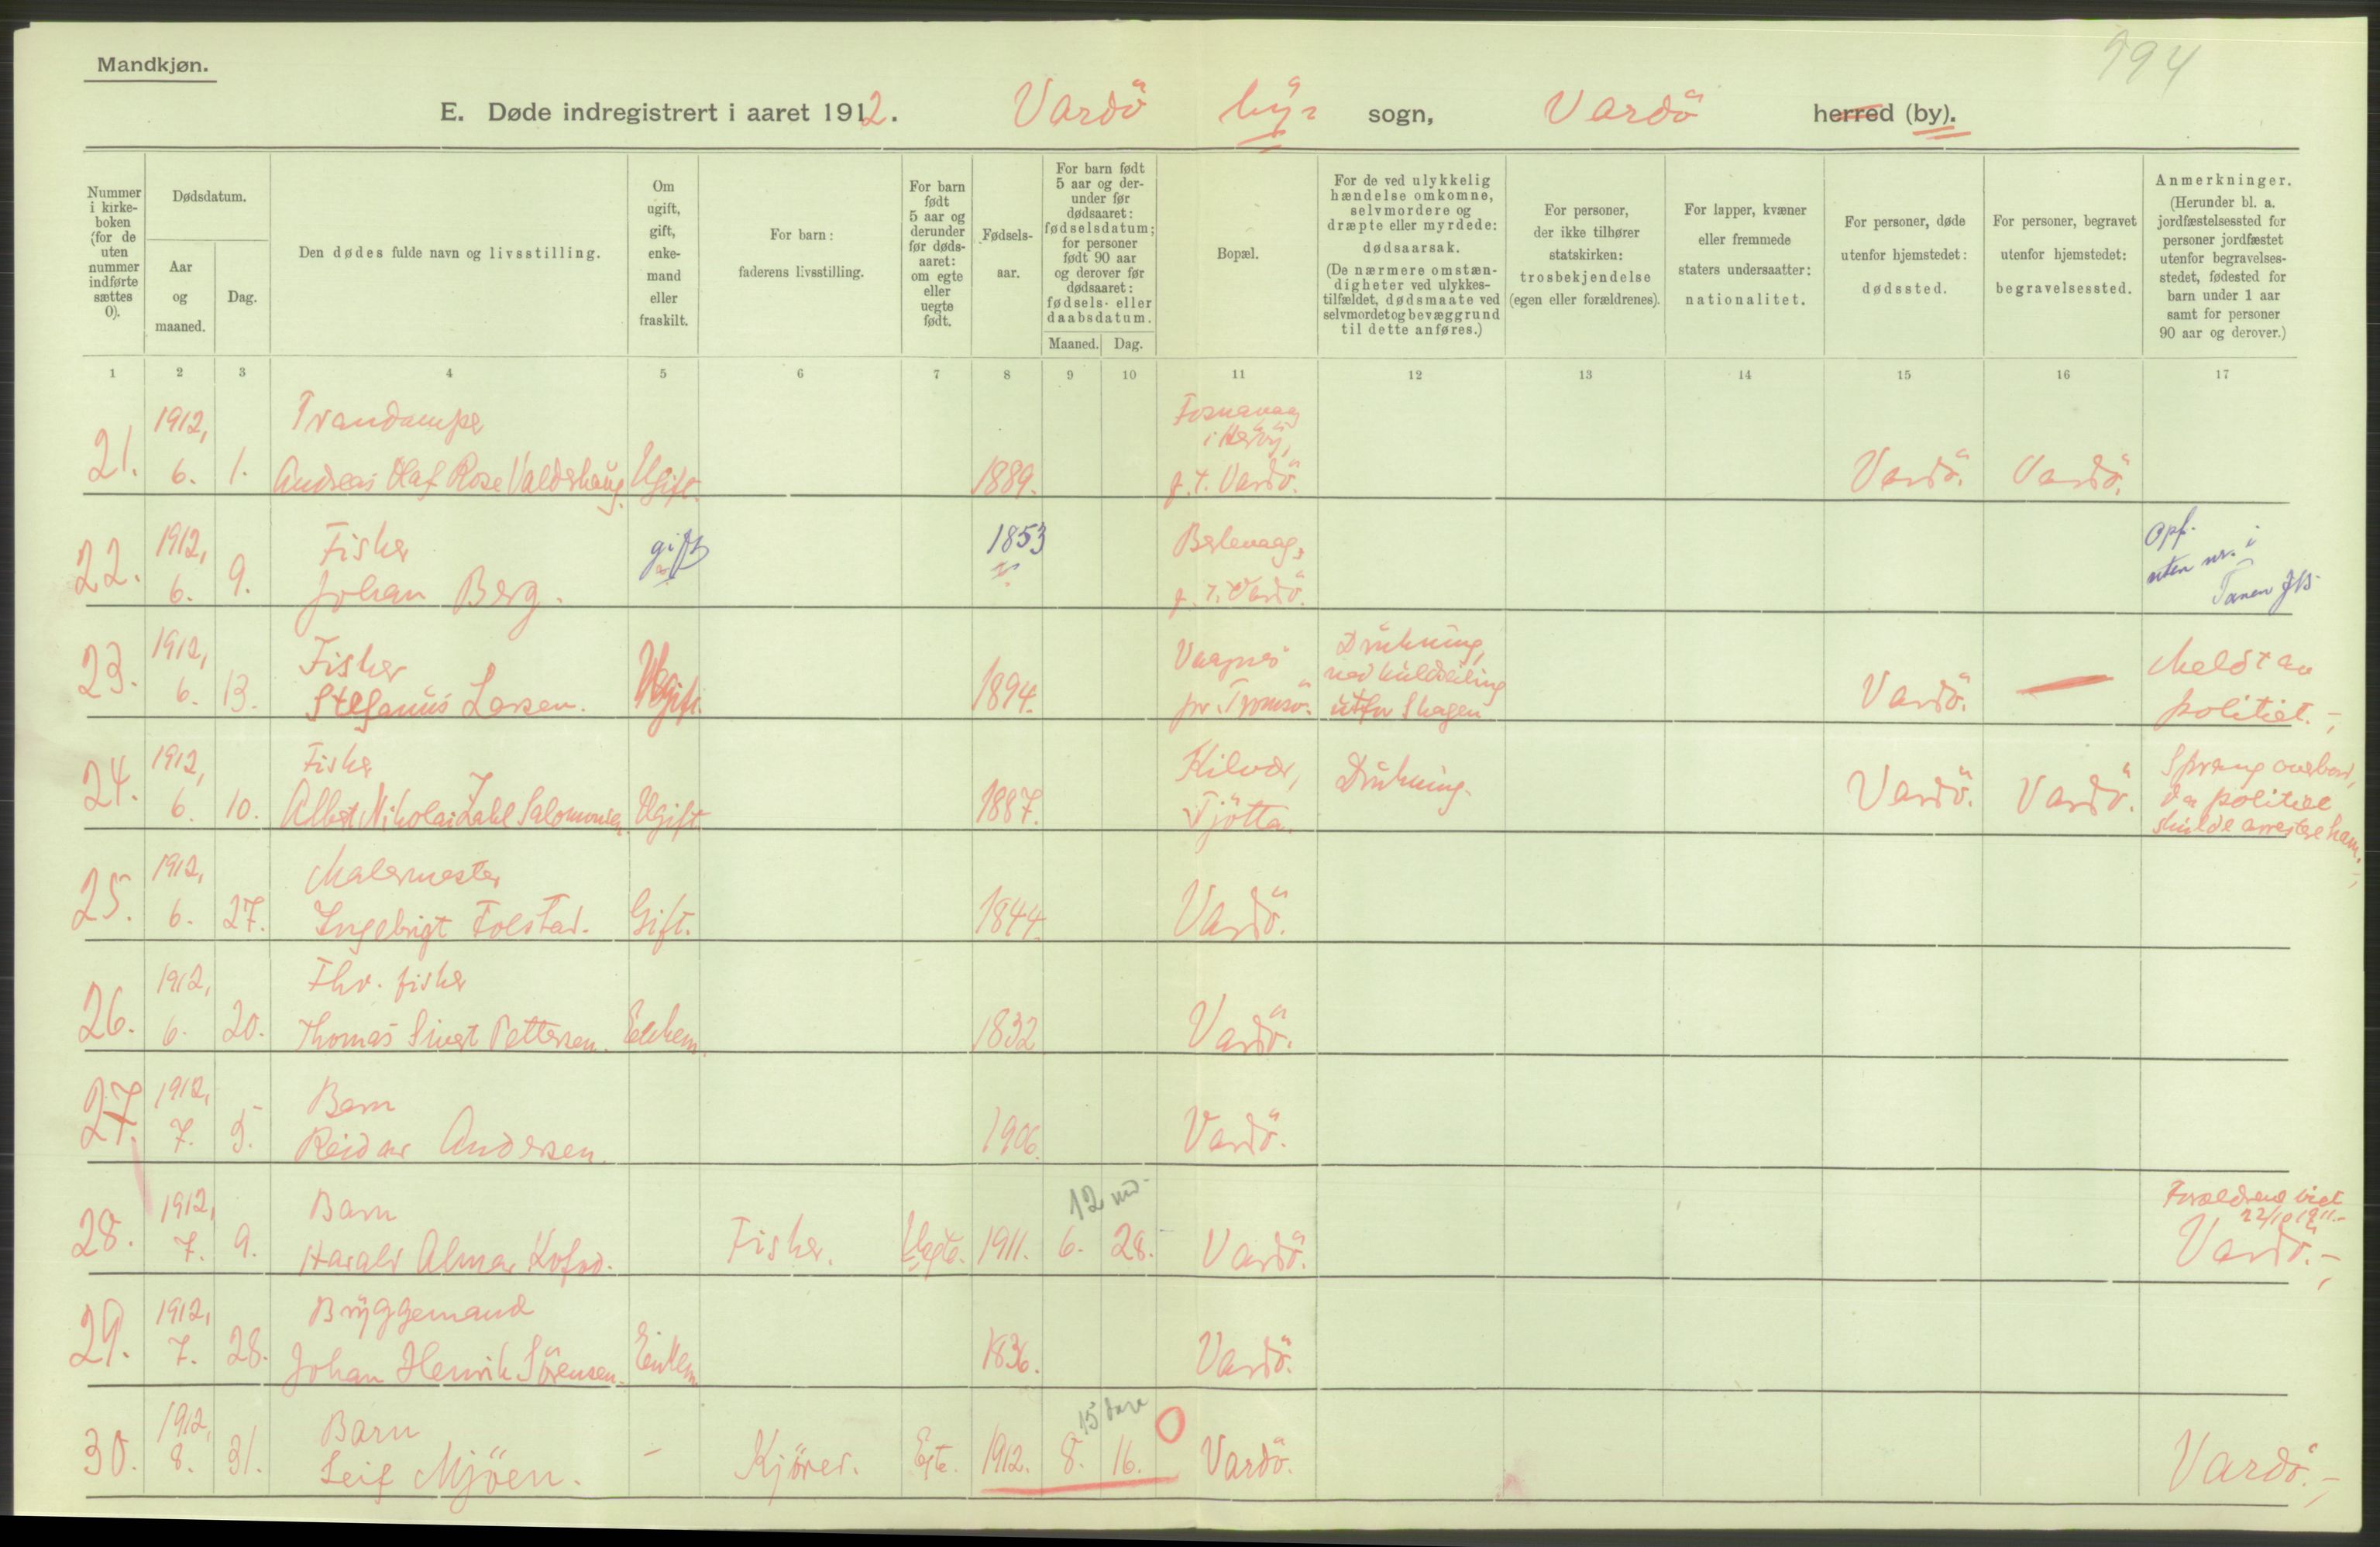 994
Mandkjøn.
E. Døde indregistrert i aaret 1912. Vardö by= sogn, Vardö herred (by).
Nummer i kirke-boken (for de uten nummer indførte sættes 0).
Dødsdatum.
Aar og maaned.
Dag.
Den dødes fulde navn og livsstilling.
Om ugift, gift, enke-mand eller fraskilt.
For barn: faderens livsstilling.
For barn født 5 aar og derunder før døds-aaret: om egte eller uegte født.
Fødsels-aar.
For barn født 5 aar og der-under før dødsaaret: fødselsdatum; for personer født 90 aar og derover før dødsaaret: fødsels- eller daabsdatum.
Maaned. Dag.
Bopæl.
For de ved ulykkelig hændelse omkomne, selvmordere og dræpte eller myrdede: dødsaarsak. (De nærmere omstæn-digheter ved ulykkes-tilfældet, dødsmaate ved selvmordet og bevæggrund til dette anføres.)
For personer, der ikke tilhører statskirken: trosbekjendelse (egen eller forældrenes).
For lapper, kvæner eller fremmede staters undersaatter: nationalitet.
For personer, døde utenfor hjemstedet: dødssted.
For personer, begravet utenfor hjemstedet: begravelsessted.
Anmerkninger. (Herunder bl. a. jordfæstelsessted for personer jordfæstet utenfor begravelses-stedet, fødested for barn under 1 aar samt for personer 90 aar og derover.)
1 2 3 4 5 6 7 8 9 10 11 12 13 14 15 16 17
21. 1912, 6. 1. Andreas Olaf Rose Valdershaug. Ugift. 1889. Fosnavaag i Herøy, f. t. Vardö. Vardö. Vardö.
22. 1912, 6. 9. Fisker Johan Berg. gift 1853 Berlevaag, f. t. Vardö. Opf. uten nr. i Tanen
23. 1912, 6. 13. Fisker Stefanus Larsen. Ugift. 1894. Vaagnes pr. Tromsö. Drukning, ved kuldseiling utfor Skagen Vardö. — Meldt av politiet.
24. 1912, 6. 10. Fisker Albert Nikolai Zahl Salomonsen. Ugift 1887. Flilvær, Tjötta. Drukning. Vardö. Vardö. Sprang overbord, da politiet skulde arrestere ham.
25. 1912, 6. 27. Malermester Ingebrigt Folstad. Gift. 1844. Vardö.
26. 1912, 6. 20. Fhv. fisker Thomas Sivert Pettersen. Enkem. 1832 Vardö.
27. 1912, 7. 5. Barn Reidar Andersen. 1906. Vardö.
28. 1912, 7. 9. Barn Harald Almar Kofod. Fisker. Uegte. 1911. 6. 28. 12 md. Vardö. Forældrene viet 22/10 1911. Vardö.
29. 1912, 7. 28. Bryggemand Johan Henrik Sörensen. Enkem. 1836. Vardö.
30. 1912, 8. 31. Barn Leif Mjöen. – Kjörer. Egte. 1912. 8. 16. 15 dare O Vardö. Vardö.